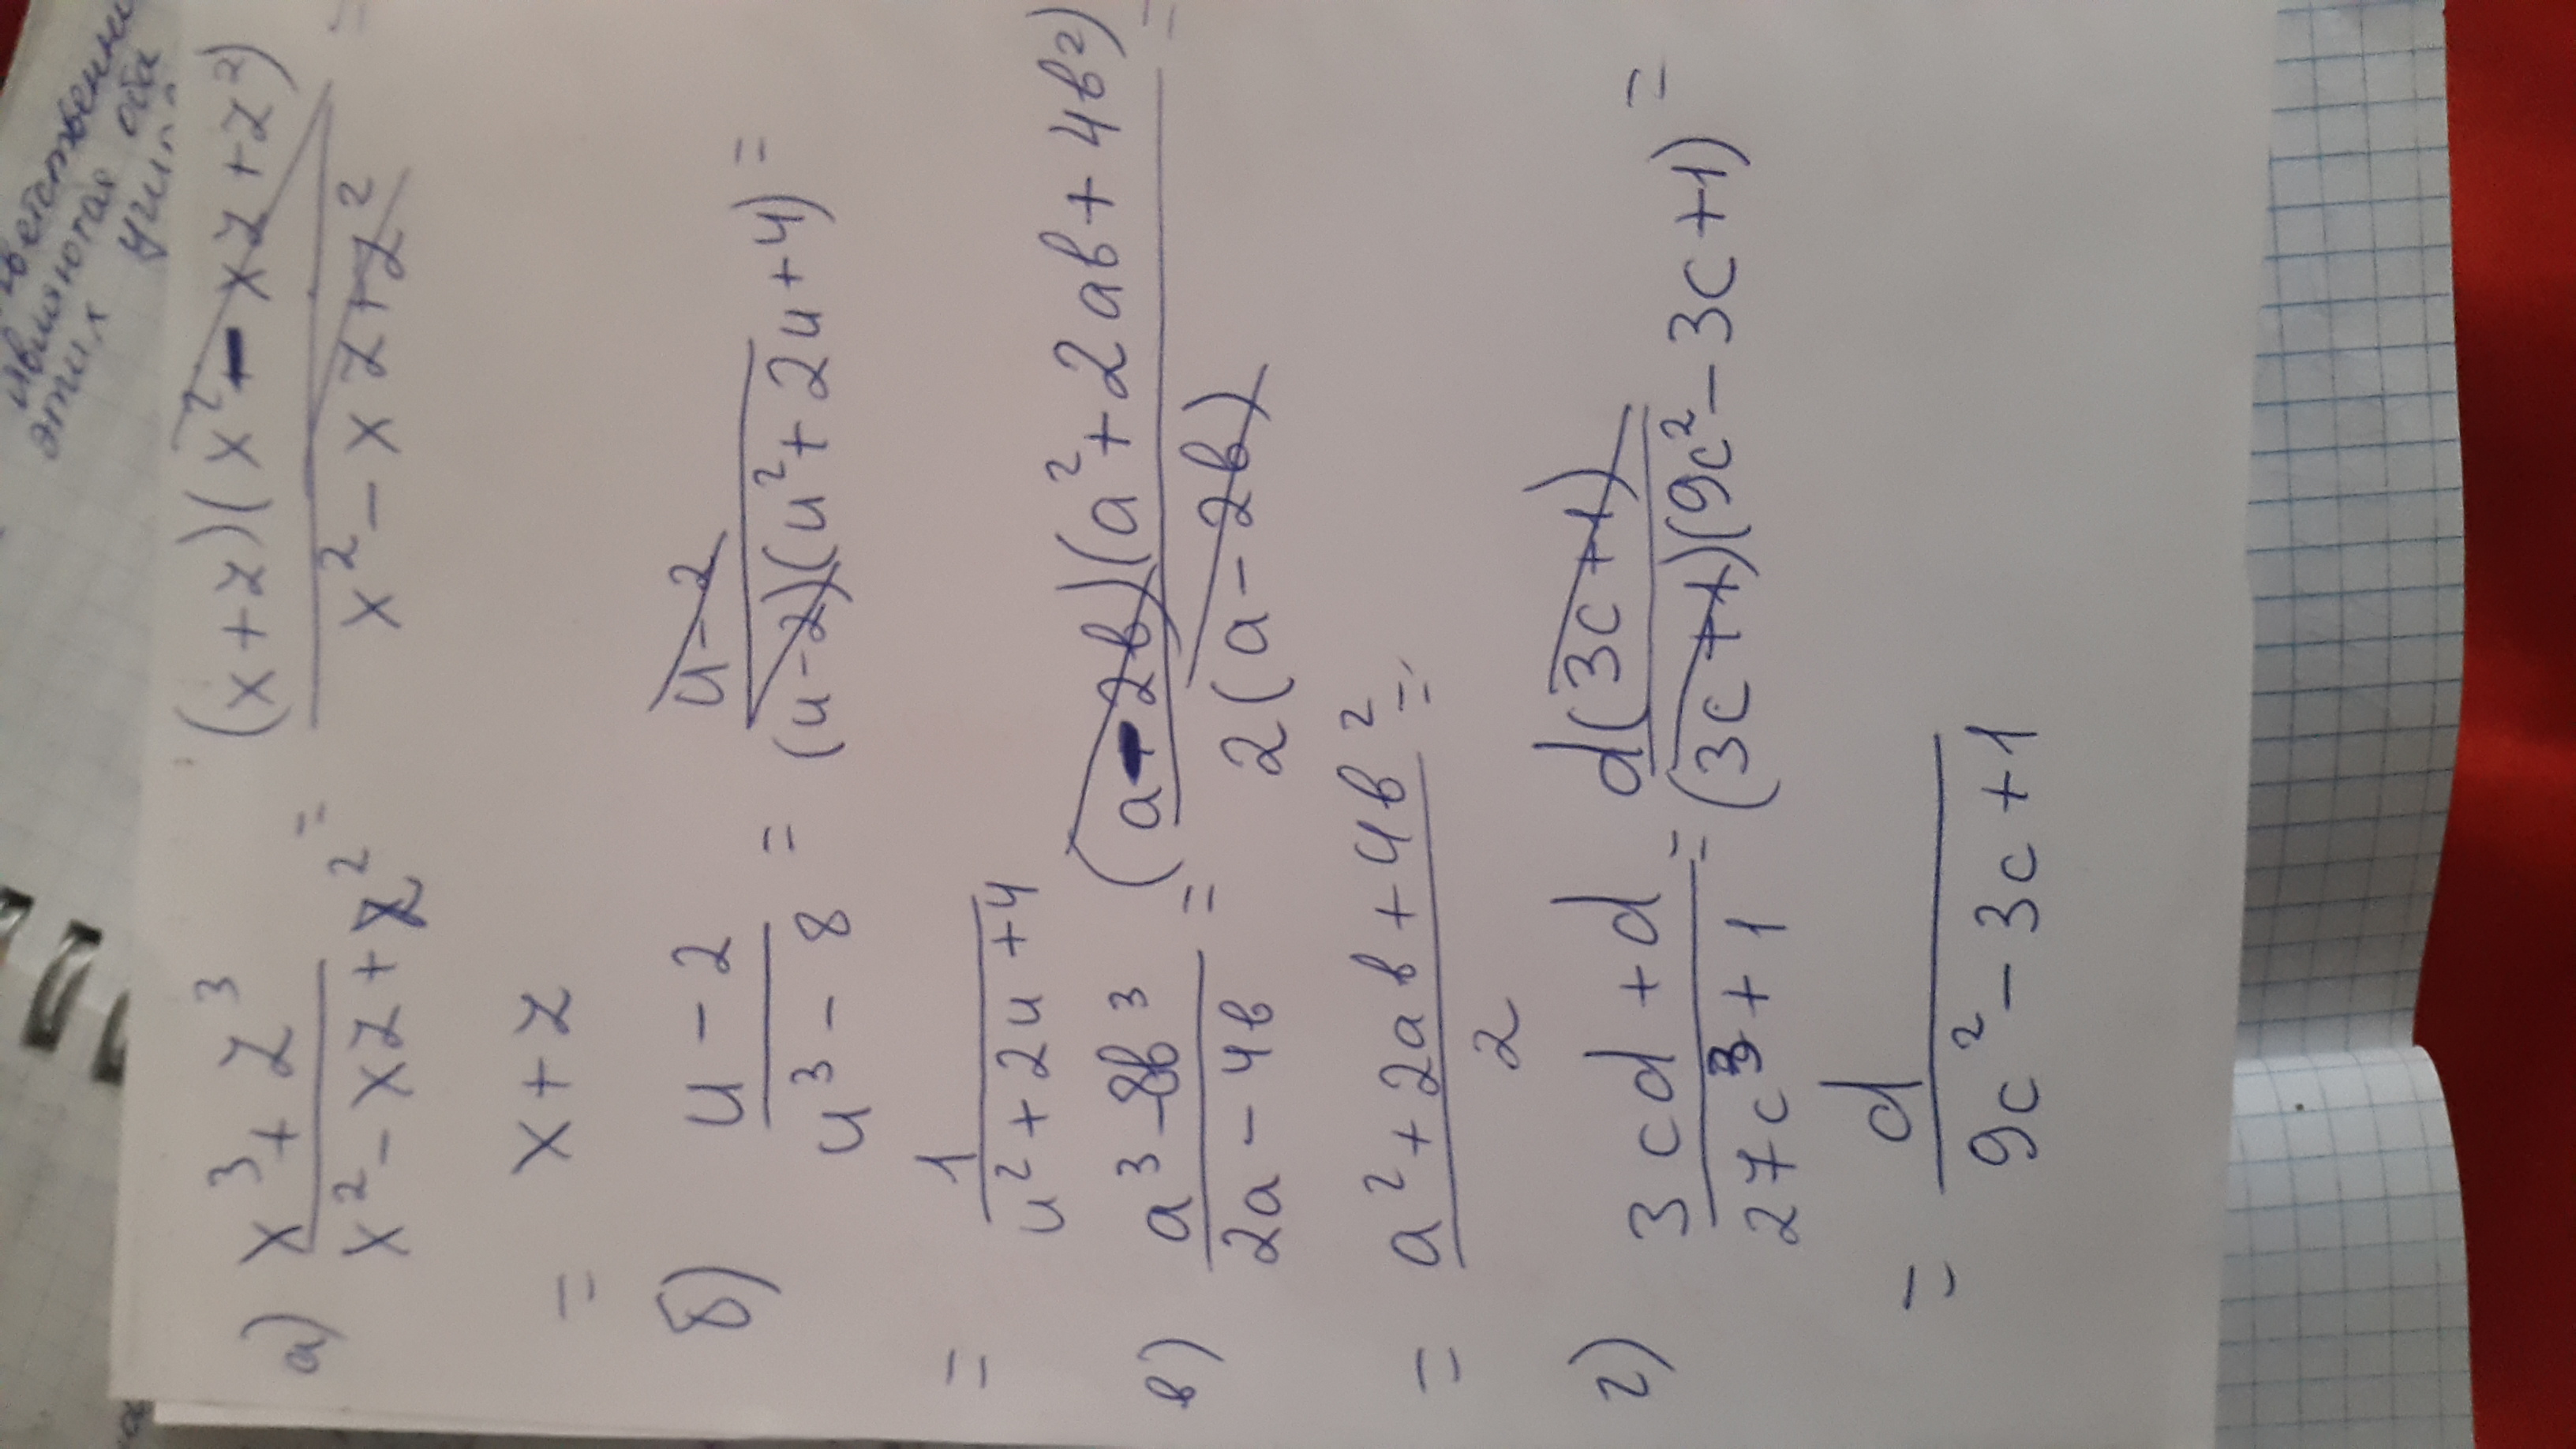 явля
этих
а) (x³ + z³)/(x² - xz + z²) = ((x + z)(x² - xz + z²))/(x² - xz + z²) =
= x + z
б) (u - 2)/(u³ - 8) = (u - 2)/((u - 2)(u² + 2u + 4)) =
= 1/(u² + 2u + 4)
в) (a³ - 8в³)/(2a - 4в) = ((a - 2в)(a² + 2aв + 4в²))/(2(a - 2в)) =
= (a² + 2aв + 4в²)/2 =
г) (3cd + d)/(27c³ + 1) = (d(3c + 1))/((3c + 1)(9c² - 3c + 1)) =
= d/(9c² - 3c + 1)